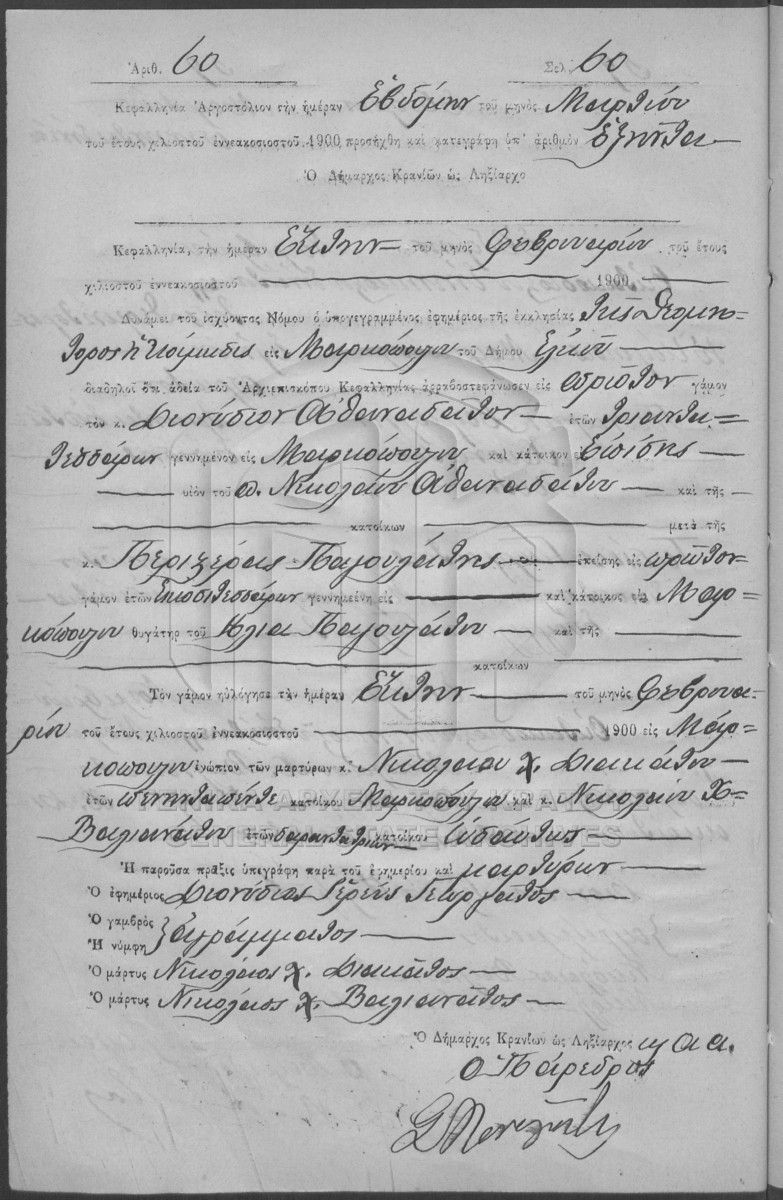 Ἀριθ. 60 Σελ. 60
Κεφαλληνία Ἀργοστόλιον τὴν ἡμέραν Ἑβδόμην τοῦ μηνὸς Μαρτίου
τοῦ ἔτους χιλιοστοῦ ἐννεακοσιοστοῦ 1900 προσήχθη καὶ κατεγράφη ὑπ' ἀριθμὸν Ἑξῆντα
Ὁ Δήμαρχος Κρανίων ὡς Ληξίαρχο
Κεφαλληνία, τὴν ἡμέραν Ἕκτην τοῦ μηνὸς Φεβρουαρίου τοῦ ἔτους
χιλιοστοῦ ἐννεακοσιοστοῦ 1900
Δυνάμει τοῦ ἰσχύοντος Νόμου ὁ ὑπογεγραμμένος ἐφημέριος τῆς ἐκκλησίας
εἰς Μαρκόπουλον τοῦ Δήμου
διαδηλοῖ ὅτι ἀδείᾳ τοῦ Ἀρχιεπισκόπου Κεφαλληνίας ἀρραβοστεφάνωσεν εἰς πρῶτον γάμον
τὸν κ. Διονύσιον Ἀθανασάτον ἐτῶν τριαντα=
τεσσάρων γεννημένον εἰς Μαρκόπουλον καὶ κάτοικον ἐπίσης
υἱὸν τοῦ π. Νικολάου Ἀθανασάτου καὶ τῆς
κατοίκων μετὰ τῆς
κ. Παγουλάτης ἐπίσης εἰς πρῶτον
γάμον ἐτῶν εἰκοσιτεσσάρων γεννημένη εἰς καὶ κάτοικος εἰς Μαρ=
κόπουλον θυγάτηρ τοῦ Ἠλία Παγουλάτου καὶ τῆς
κατοίκων
Τὸν γάμον ηὐλόγησε τὴν ἡμέραν Ἕκτην τοῦ μηνὸς Φεβρουα=
ρίου τοῦ ἔτους χιλιοστοῦ ἐννεακοσιοστοῦ 1900 εἰς Μαρ=
κόπουλον ἐνώπιον τῶν μαρτύρων κ. Νικολάου Χ. Διακάτου
ἐτῶν πενηνταπέντε κατοίκου Μαρκοπούλου καὶ κ. Νικολάου Χ=
Βαλιανάτου ἐτῶν σαραντατριῶν κατοίκου
ΓΕΝΙΚΑ ΑΡΧΕΙΑ ΤΟΥ ΚΡΑΤΟΥΣ
GENERAL STATE ARCHIVES
Ἡ παροῦσα πρᾶξις ὑπεγράφη παρὰ τοῦ ἐφημερίου καὶ μαρτύρων
Ὁ ἐφημέριος Διονύσιος Ἱερεὺς
Ὁ γαμβρὸς
Ἡ νύμφη } ἀγράμματοι
Ὁ μάρτυς Νικόλαος Χ. Διακάτος
Ὁ μάρτυς Νικόλαος Χ. Βαλιανάτος
Ὁ Δήμαρχος Κρανίων ὡς Ληξίαρχος
ὁ Πάρεδρος